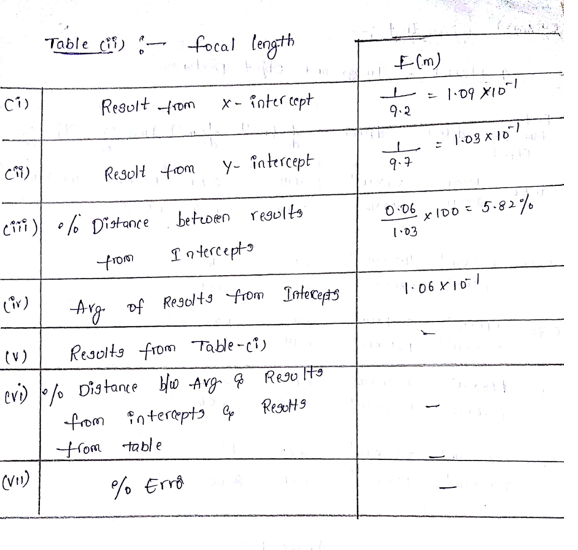 Table (ii) :- focal length
F(m)
(i) Result from x-intercept 1/9.2 = 1.09 x10^-1
(ii) Result from y-intercept 1/9.7 = 1.03 x 10^-1
(iii) % Distance between results 0.06/1.03 x 100 = 5.82%
from Intercepts
(iv) Avg. of Results from Intecepts 1.06 x 10^-1
(v) Results from Table-(i) -
(vi) % Distance b/w Avg. & Results
from intercepts & Results -
from table -
(vii) % Erro -